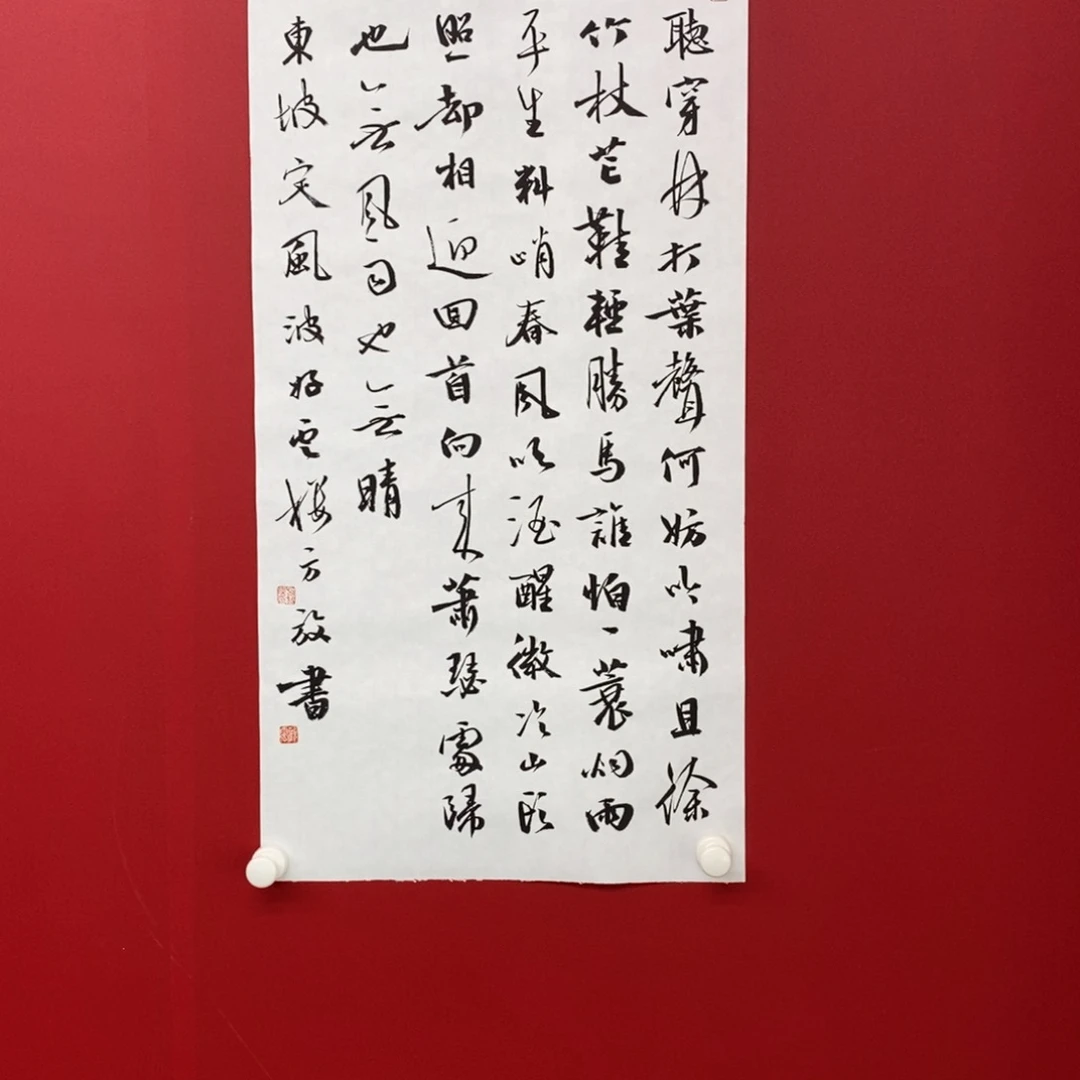 聽穿林打葉聲何妨吟嘯且徐
竹杖芒鞋輕勝馬誰怕一蓑烟雨
平生料峭春風吹酒醒微冷山頭
照却相迎回首向來蕭瑟處歸
也無風雨也無晴
東坡定風波好雲樓方放書